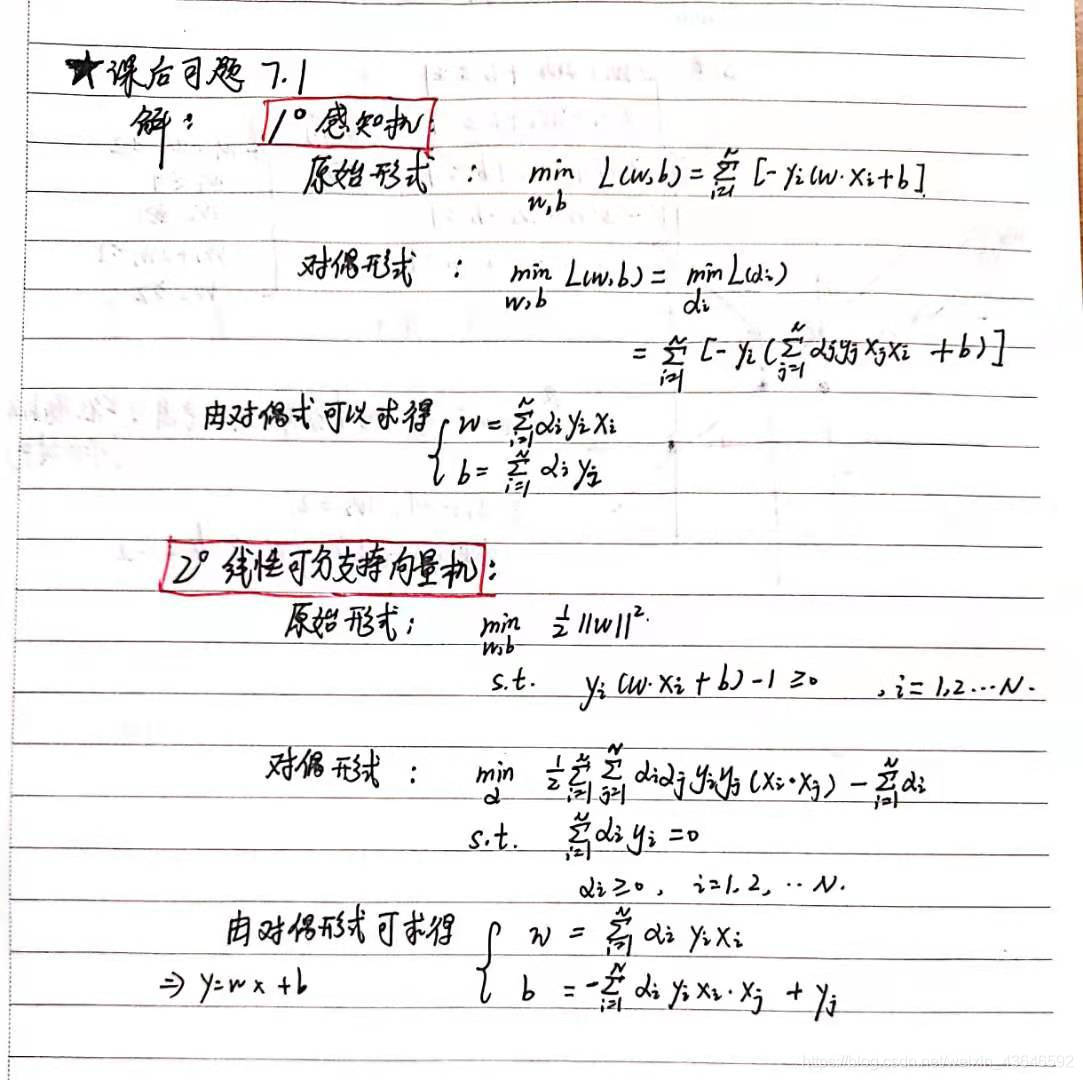 ★课后习题 7.1
解: 1° 感知机:
原始形式 : min w,b L(w,b)=∑ i=1 N [-yi(w·xi+b]
对偶形式 : min w,b L(w,b)= min αi L(αi)
= ∑ i=1 N [-yi(∑ j=1 N αjyjxjxi +b)]
由对偶式可以求得 { w=∑ i=1 N αi yi xi
b= ∑ i=1 N αi yi
2° 线性可分支持向量机:
原始形式: min w,b 1/2 ||w||²
s.t. yi (w·xi+b)-1≥0 , i=1,2…N.
对偶形式 : min α 1/2 ∑ i=1 N ∑ j=1 N αiαj yiyj (xi·xj) - ∑ i=1 N αi
s.t. ∑ i=1 N αi yi =0
αi≥0, i=1,2,…N.
由对偶形式可求得 { w = ∑ i=1 N αi yi xi
⇒ y=wx+b b = -∑ i=1 N αi yi xi·xj + yj
https://blog.csdn.net/weixin_43646592